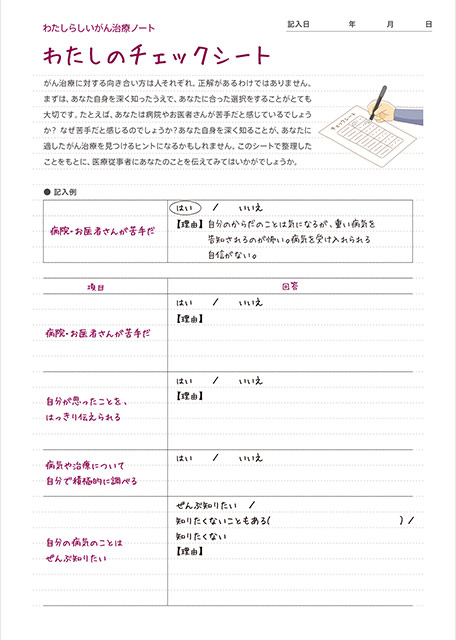 わたしらしいがん治療ノート
記入日 年 月 日
わたしのチェックシート
がん治療に対する向き合い方は人それぞれ。正解があるわけではありません。
まずは、あなた自身を深く知ったうえで、あなたに合った選択をすることがとても
大切です。たとえば、あなたは病院やお医者さんが苦手だと感じているでしょう
か？ なぜ苦手だと感じるのでしょうか？あなた自身を深く知ることが、あなたに
適したがん治療を見つけるヒントになるかもしれません。このシートで整理した
ことをもとに、医療従事者にあなたのことを伝えてみてはいかがでしょうか。
チェックシート
● 記入例
病院・お医者さんが苦手だ
はい / いいえ
【理由】自分のからだのことは気になるが、重い病気を
告知されるのが怖い。病気を受け入れられる
自信がない。
項目 回答
病院・お医者さんが苦手だ
はい / いいえ
【理由】
自分が思ったことを、
はっきり伝えられる
はい / いいえ
【理由】
病気や治療について
自分で積極的に調べる
はい / いいえ
自分の病気のことは
ぜんぶ知りたい
ぜんぶ知りたい /
知りたくないこともある( ) /
知りたくない
【理由】